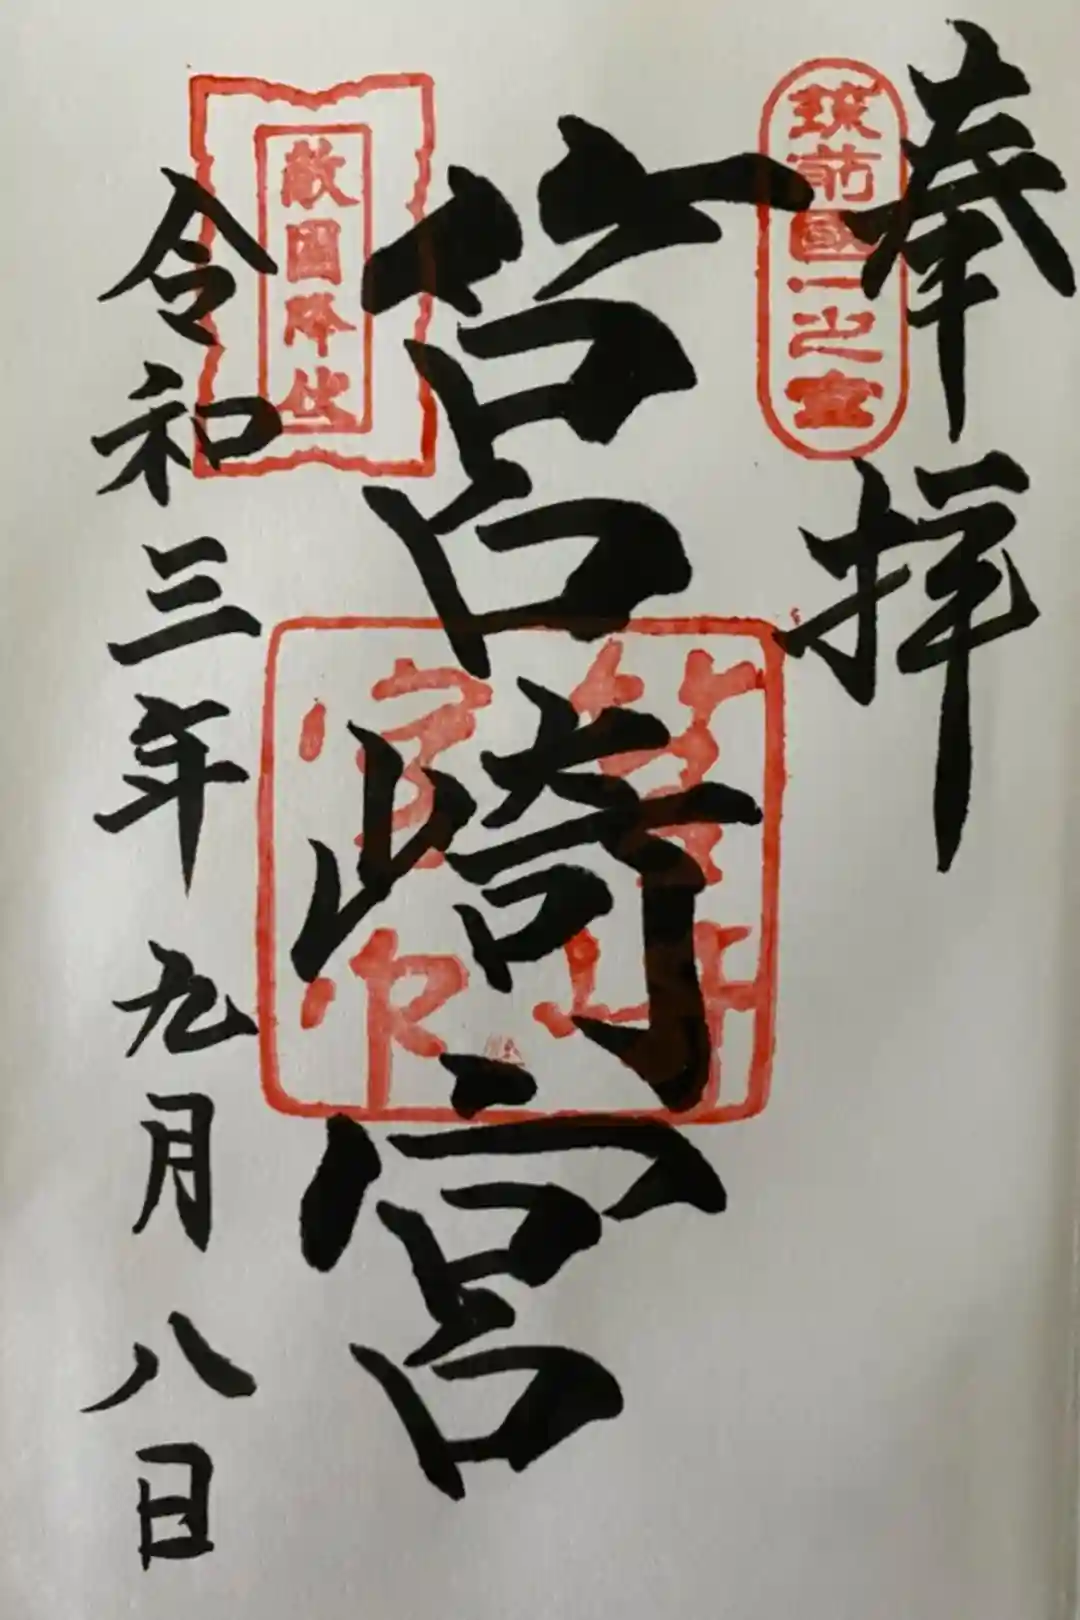 奉拝
筑前國一之宮
筥崎宮
敵國降伏
令和三年九月八日